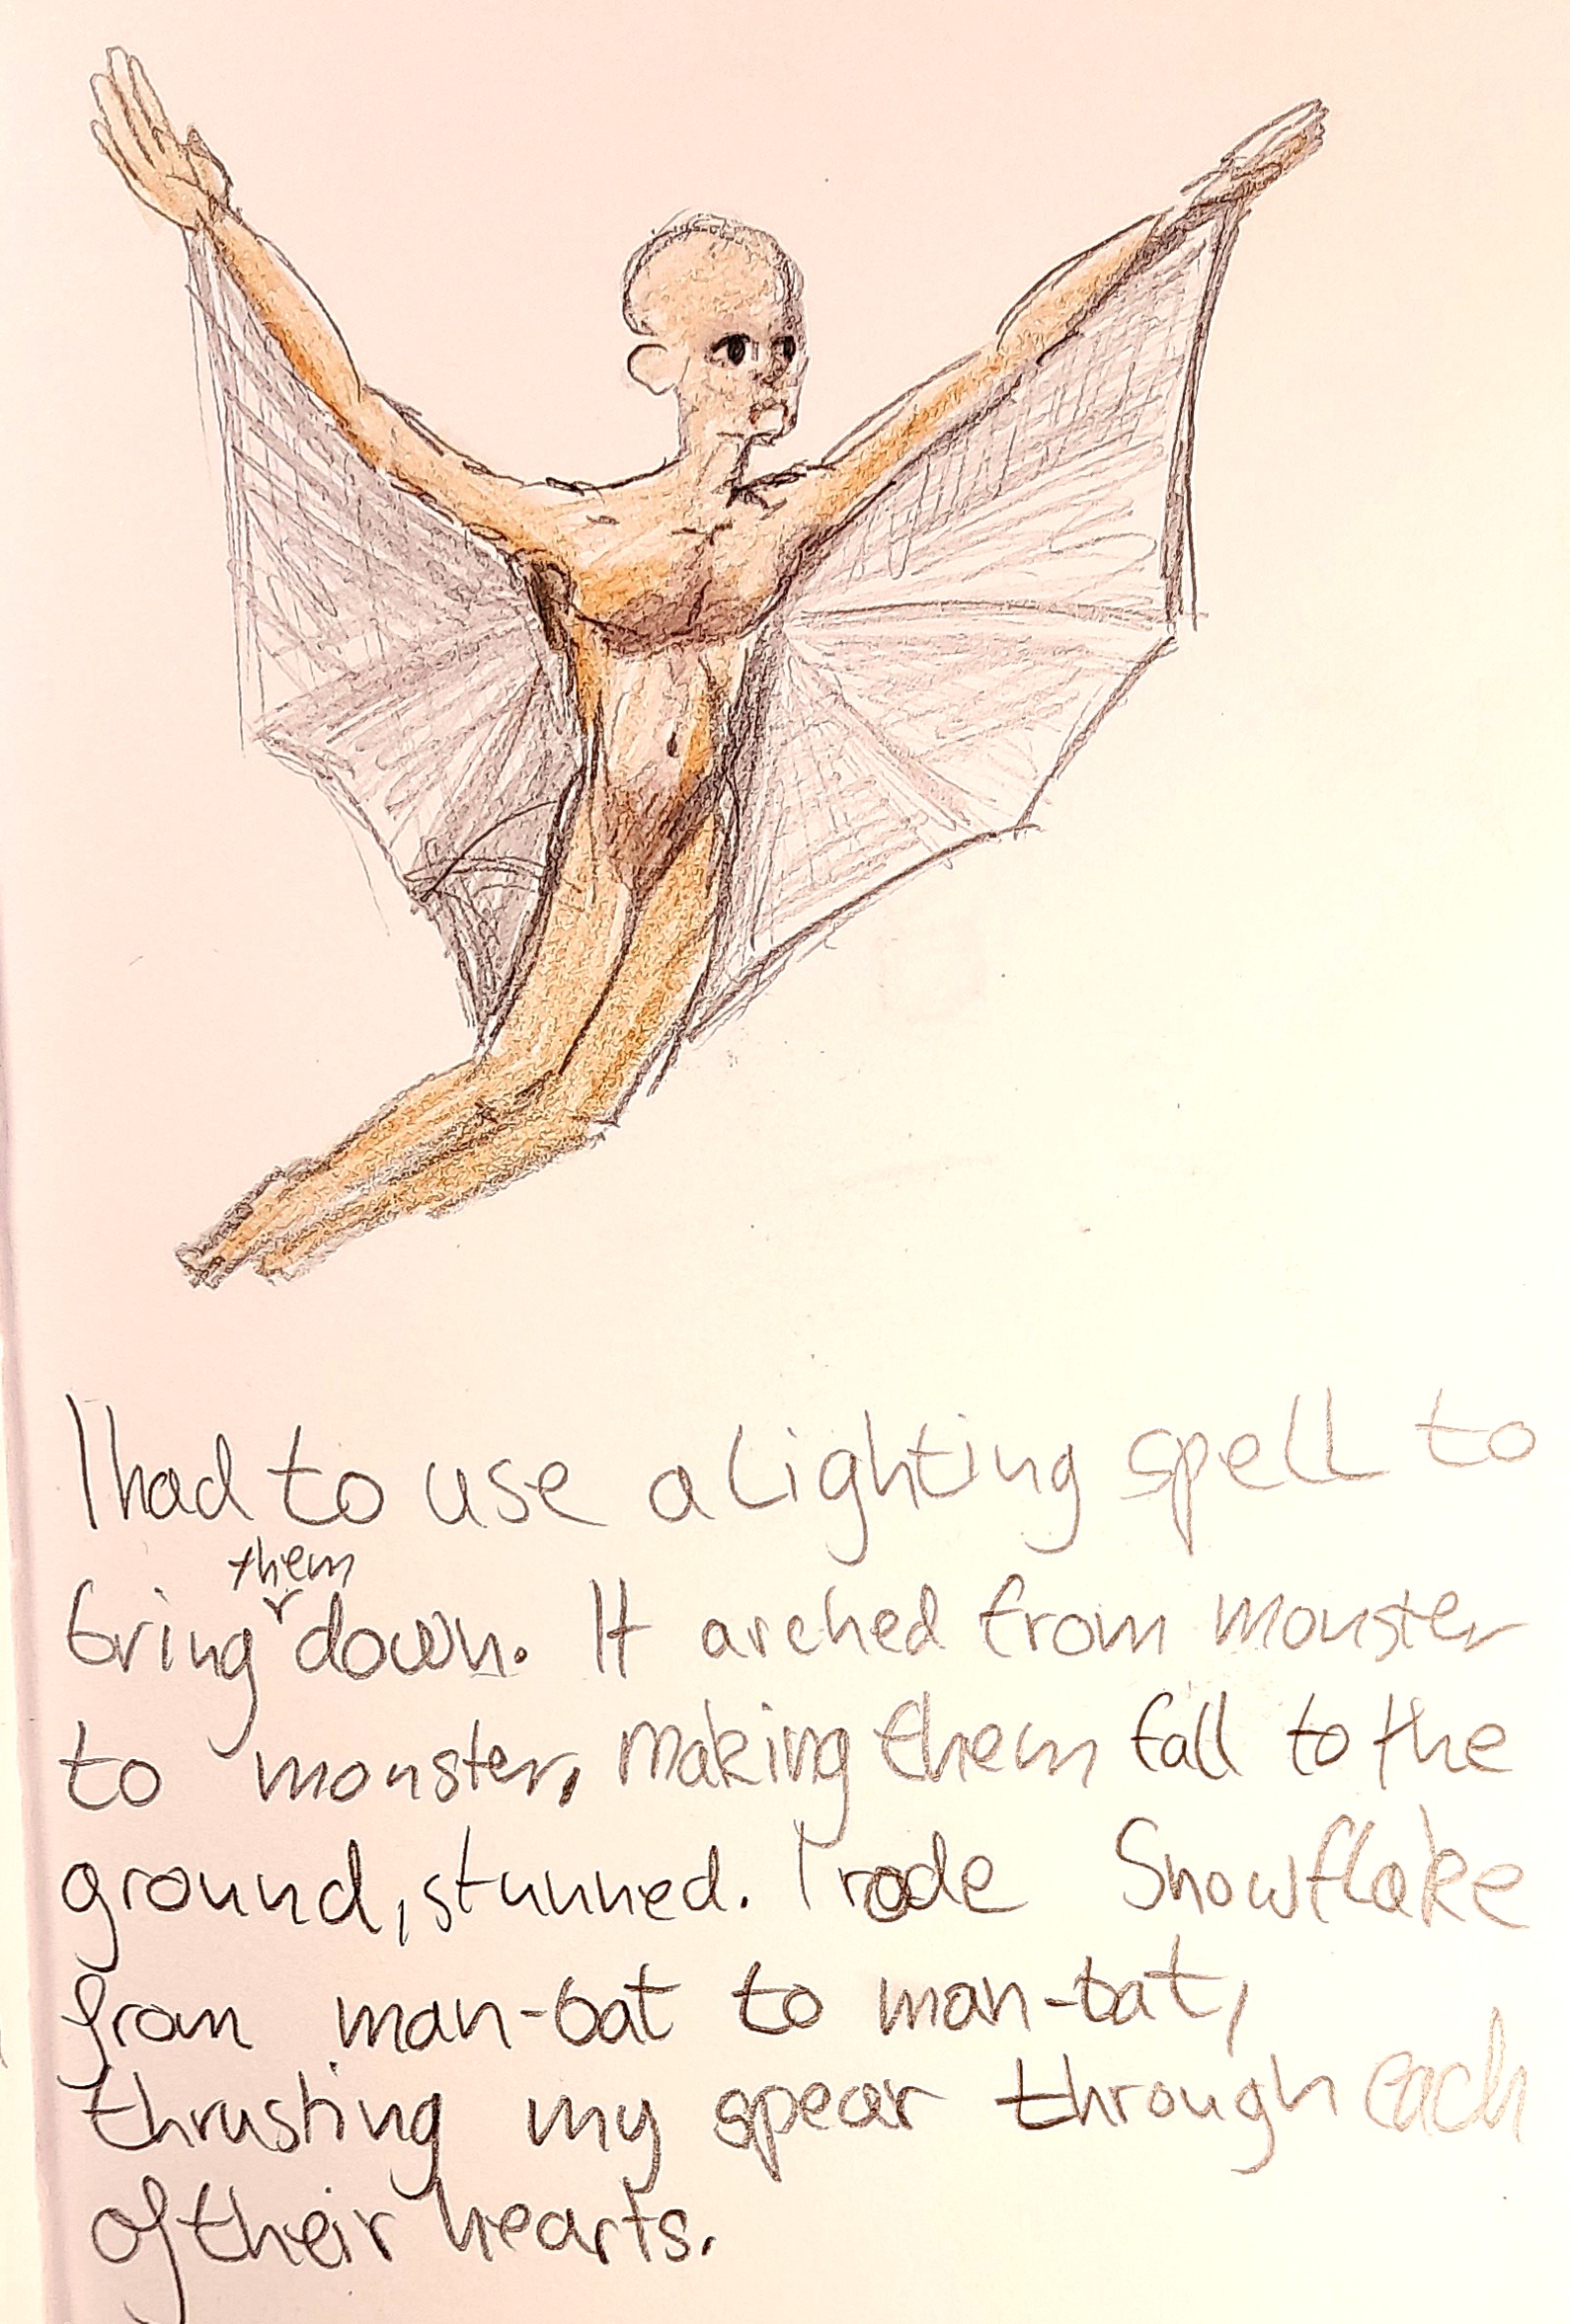 I had to use a lighting spell to
bring them down. It arched from monster
to monster, making them fall to the
ground, stunned. I rode Snowflake
from man-bat to man-bat,
thrusting my spear through each
of their hearts.